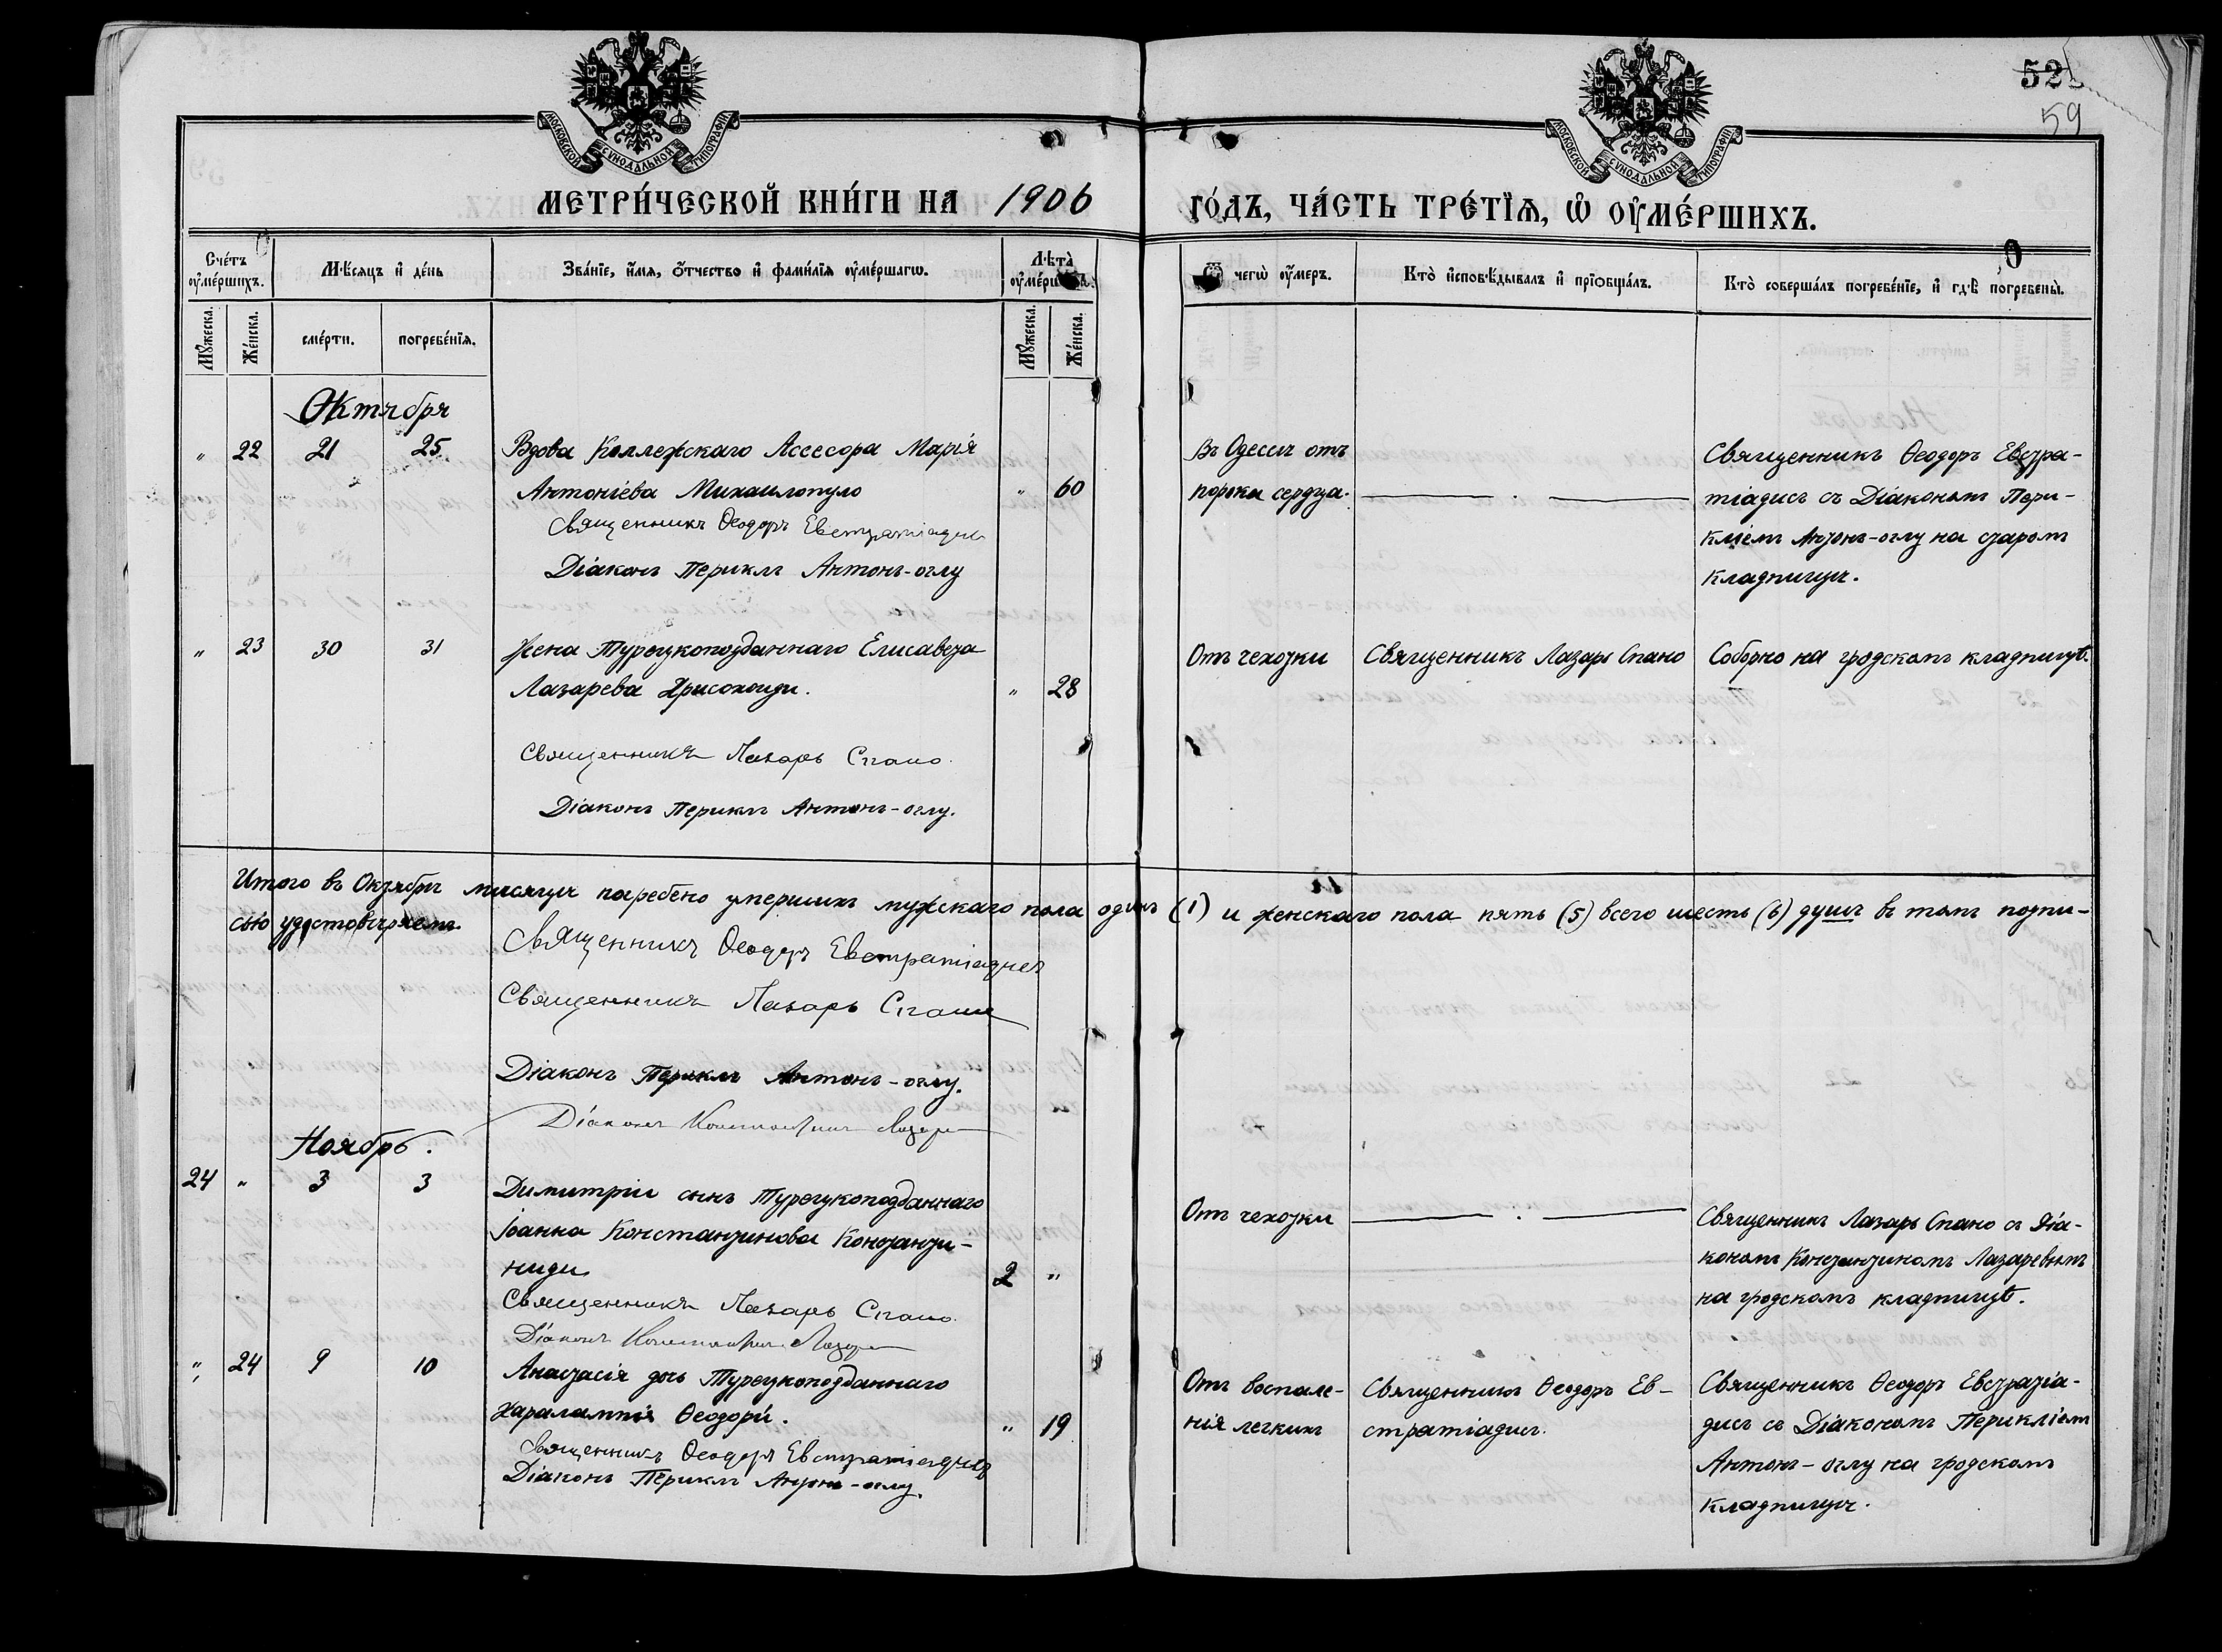 МОСКОВСКОЙ СѴНОДАЛЬНОЙ ТИПОГРАФІИ
МОСКОВСКОЙ СѴНОДАЛЬНОЙ ТИПОГРАФІИ
52
59
МЕТРИ́ЧЕСКОЙ КНИ́ГИ НА 1906 ГО́ДЪ, ЧА́СТЬ ТРЕ́ТЇѦ, Ѡ҆ ОУ҆МЕ́РШИХЪ.
Сче́тъ оу҆ме́ршихъ.
Мѣ́сяцъ и҆ де́нь
Зва́нїе, и҆́мя, ѻ҆́тчество и҆ фами́лїя оу҆ме́ршагѡ.
Лѣ́та̀ оу҆ме́ршагѡ.
Ѿ чегѡ̀ оу҆́меръ.
Кто̀ и҆сповѣ́дывалъ и҆ прїѻбща́лъ.
Кто̀ соверша́лъ погребе́нїе, и҆ гдѣ̀ погребены̀.
Мꙋ́жеска.
Же́нска.
сме́рти.
погребе́нїя.
Мꙋ́жеска.
Же́нска.
Октября
" 22 21 25 Вдова Коллежскаго Ассесора Марія
Антоніева Михаилопуло " 60
Священникъ Ѳеодоръ Евстратіадисъ
Діаконъ Периклъ Антонъ-оглу
Въ Одессѣ отъ
порока сердца. — . —
Священникъ Ѳеодоръ Евстра-
тіадисъ съ Діакономъ Пери-
кліемъ Антонъ-оглу на старомъ
кладпищѣ.
" 23 30 31 Жена Турецкоподданнаго Елисавета
Лазарева Хрисохоиди. " 28
Священникъ Лазарь Спано.
Діаконъ Периклъ Антонъ-оглу.
Отъ чехотки
Священникъ Лазарь Спано
Соборно на гродскомъ кладпищѣ.
Итого въ Октябрѣ мѣсяцѣ погребено умершихъ мужскаго пола одинъ (1) и женскаго пола пять (5) всего шесть (6) душъ въ томъ подпи-
сью удостовѣряемъ.
Священникъ Ѳеодоръ Евстратіадисъ
Священникъ Лазарь Спано
Діаконъ Периклъ Антонъ-оглу.
Діаконъ Константинъ Лазаре
Ноябрь.
24 " 3 3 Димитріи сынъ Турецкоподданнаго
Іоанна Константинова Константи-
ниди 2 "
Священникъ Лазарь Спано.
Діаконъ Константинъ Лазаре
Отъ чехотки — . —
Священникъ Лазарь Спано съ Діа-
кономъ Константиномъ Лазаревымъ
на гродскомъ кладпищѣ.
" 24 9 10 Анастасія дочь Турецкоподданнаго
Харалампія Ѳеодори. " 19
Священникъ Ѳеодоръ Евстратіадисъ
Діаконъ Периклъ Антонъ-оглу.
Отъ воспале-
нія легкихъ
Священникъ Ѳеодоръ Ев-
стратіадисъ.
Священникъ Ѳеодоръ Евстратіа-
дисъ съ Діакономъ Перикліемъ
Антонъ-оглу на гродскомъ
кладпищѣ.